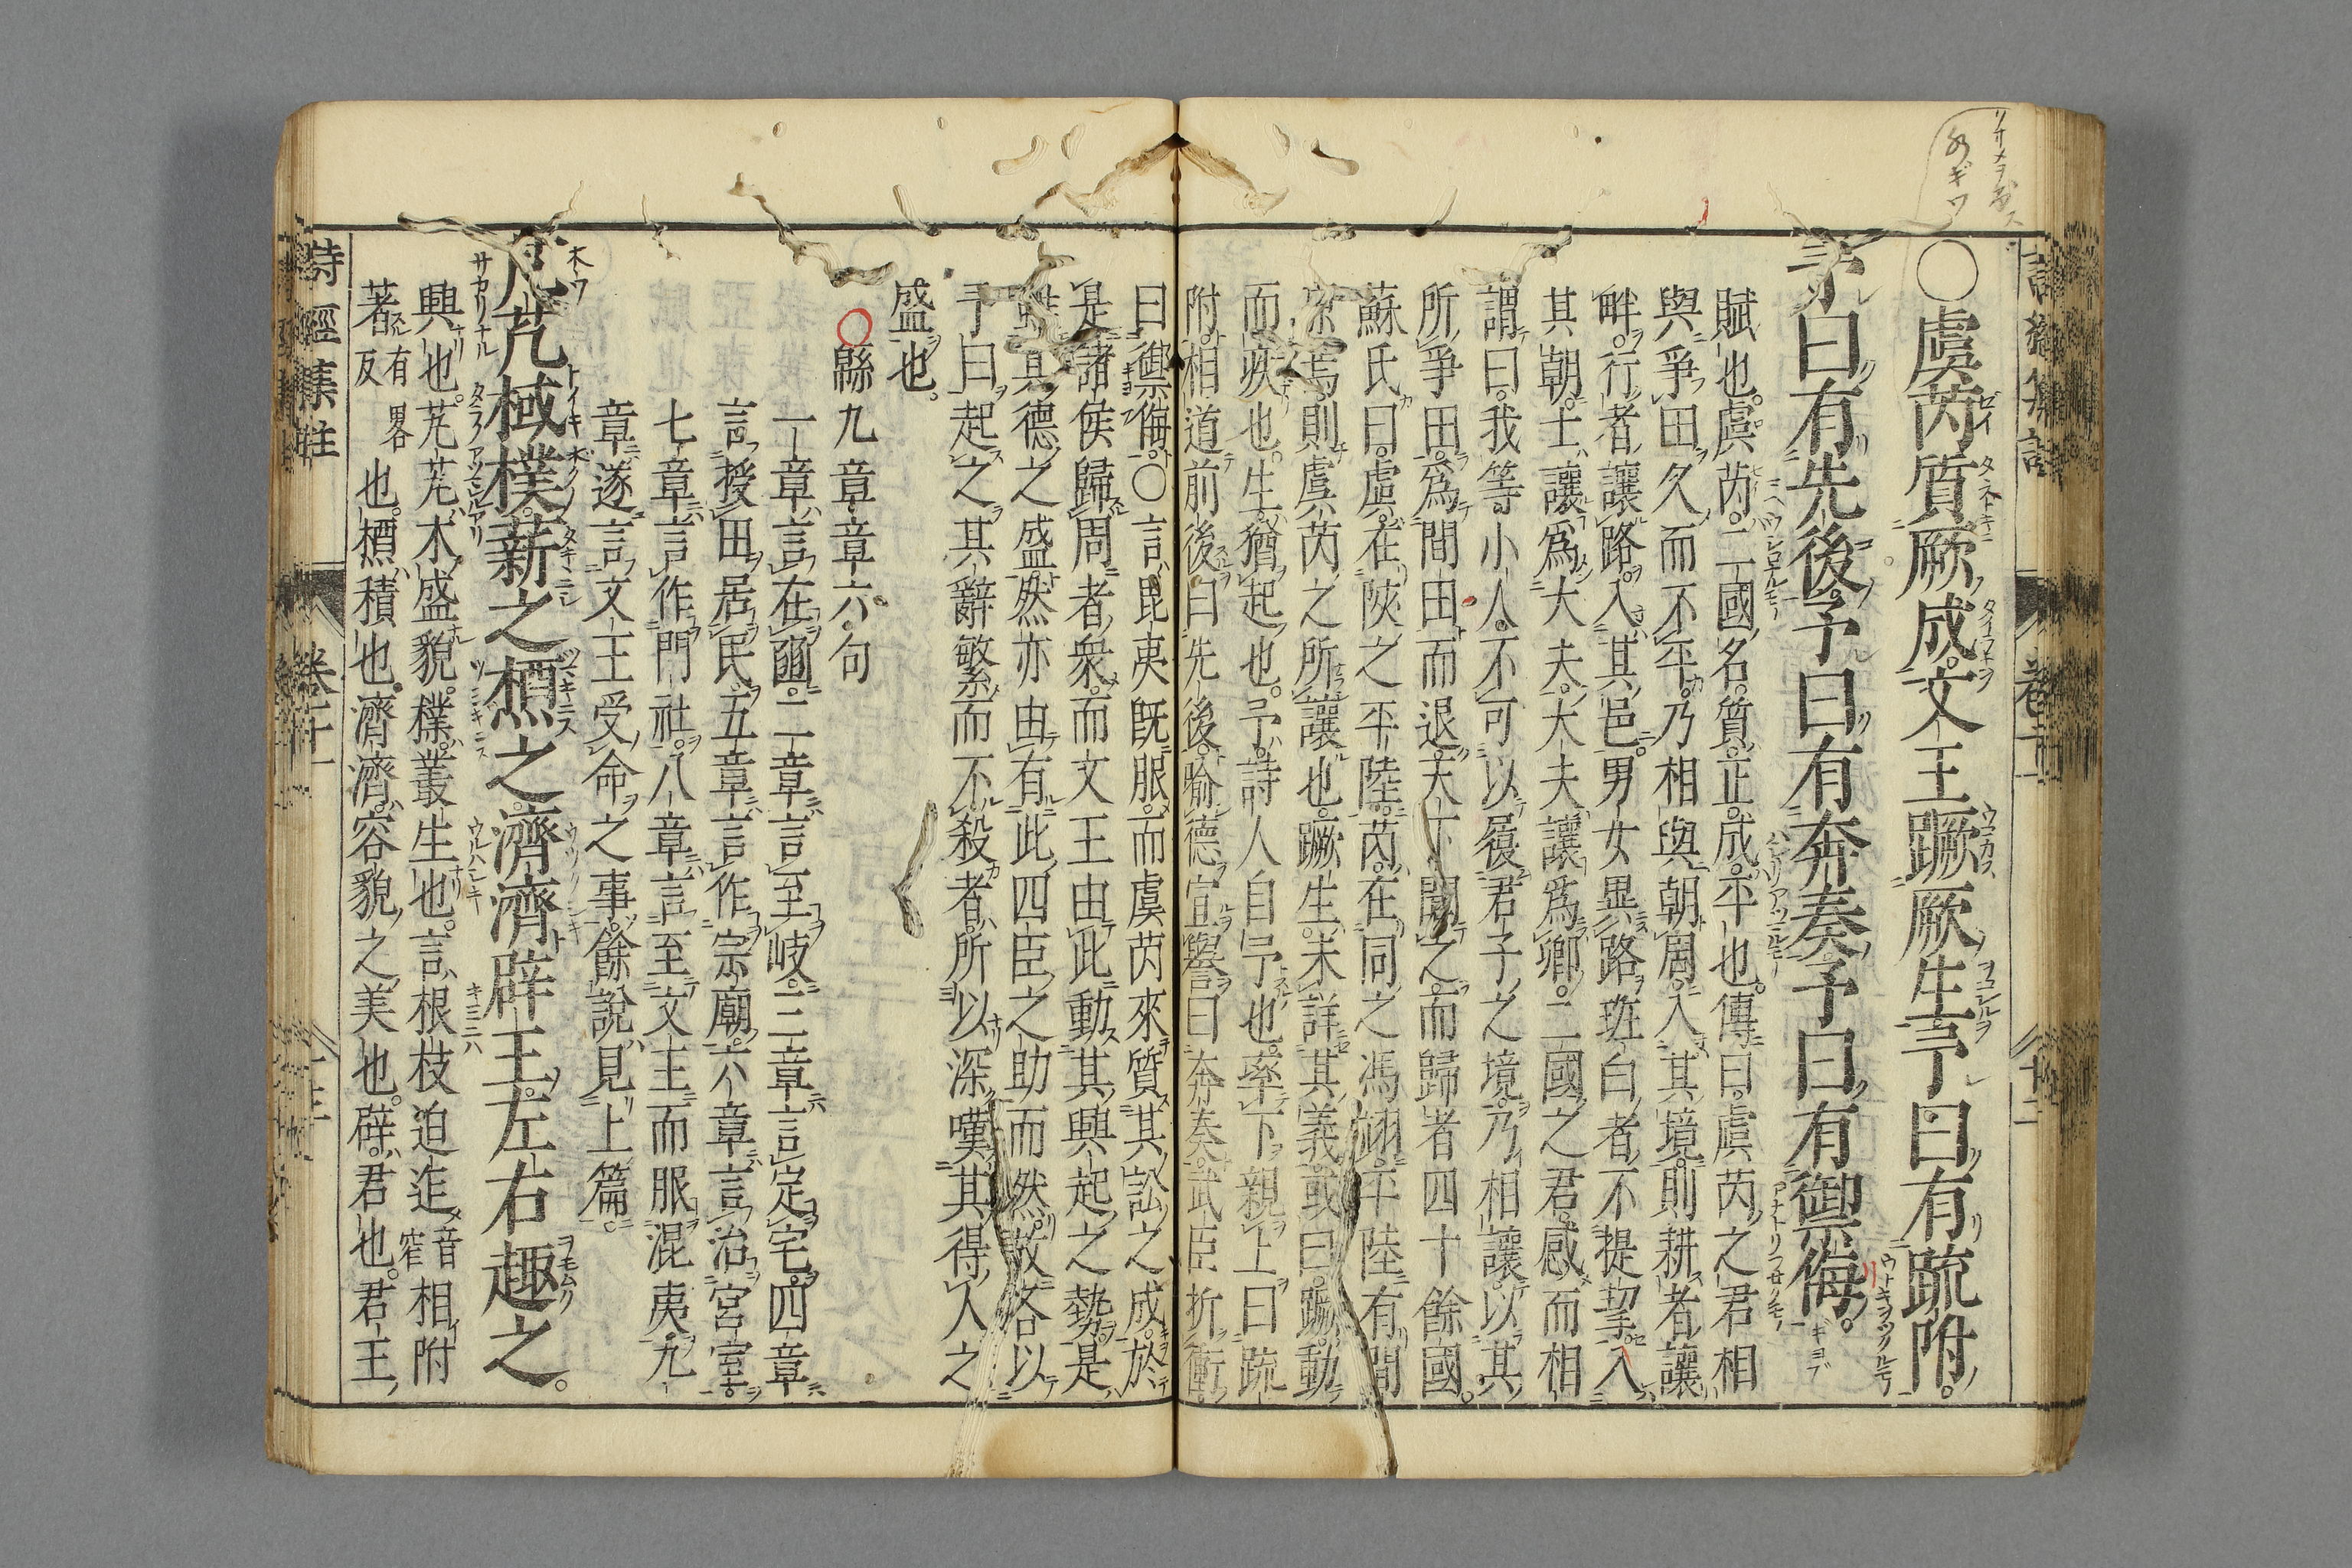 ○虞芮質厥成文王蹶厥生予曰有疏附
予曰有先後予曰有奔奏予曰有禦侮
賦也虞芮二國名質正成平也傳曰虞芮之君相
與爭田久而不平乃相與朝周入其境則耕者讓
畔行者讓路入其邑男女異路班白者不提挈入
其朝士讓爲大夫大夫讓爲卿二國之君感而相
謂曰我等小人不可以履君子之境乃相讓以其
所爭田爲間田而退天下聞之而歸者四十餘國
蘇氏曰虞在陝之平陸芮在同之馮翊平陸有間
原焉則虞芮之所讓也蹶生未詳其義或曰蹶動
而疾也生猶起也予詩人自予也率下親上曰疏
附相道前後曰先後喻德宣譽曰奔奏武臣折衝
曰禦侮○言昆夷既服而虞芮來質其訟之成於
是諸侯歸周者衆而文王由此動其興起之勢是
雖其德之盛然亦由有此四臣之助而然故各以
予曰起之其辭繁而不殺者所以深嘆其得人之
盛也
○緜九章章六句
一章言在豳二章言至岐三章言定宅四章
言授田居民五章言作宗廟六章言治宮室
七章言作門社八章言至文王而服混夷九
章遂言文王受命之事餘說見上篇
芃芃棫樸薪之槱之濟濟辟王左右趣之
興也芃芃木盛貌樸叢生也言根枝迫迮音窄相附
著直略反也槱積也濟濟容貌之美也辟君也君王
詩經集註 卷十一